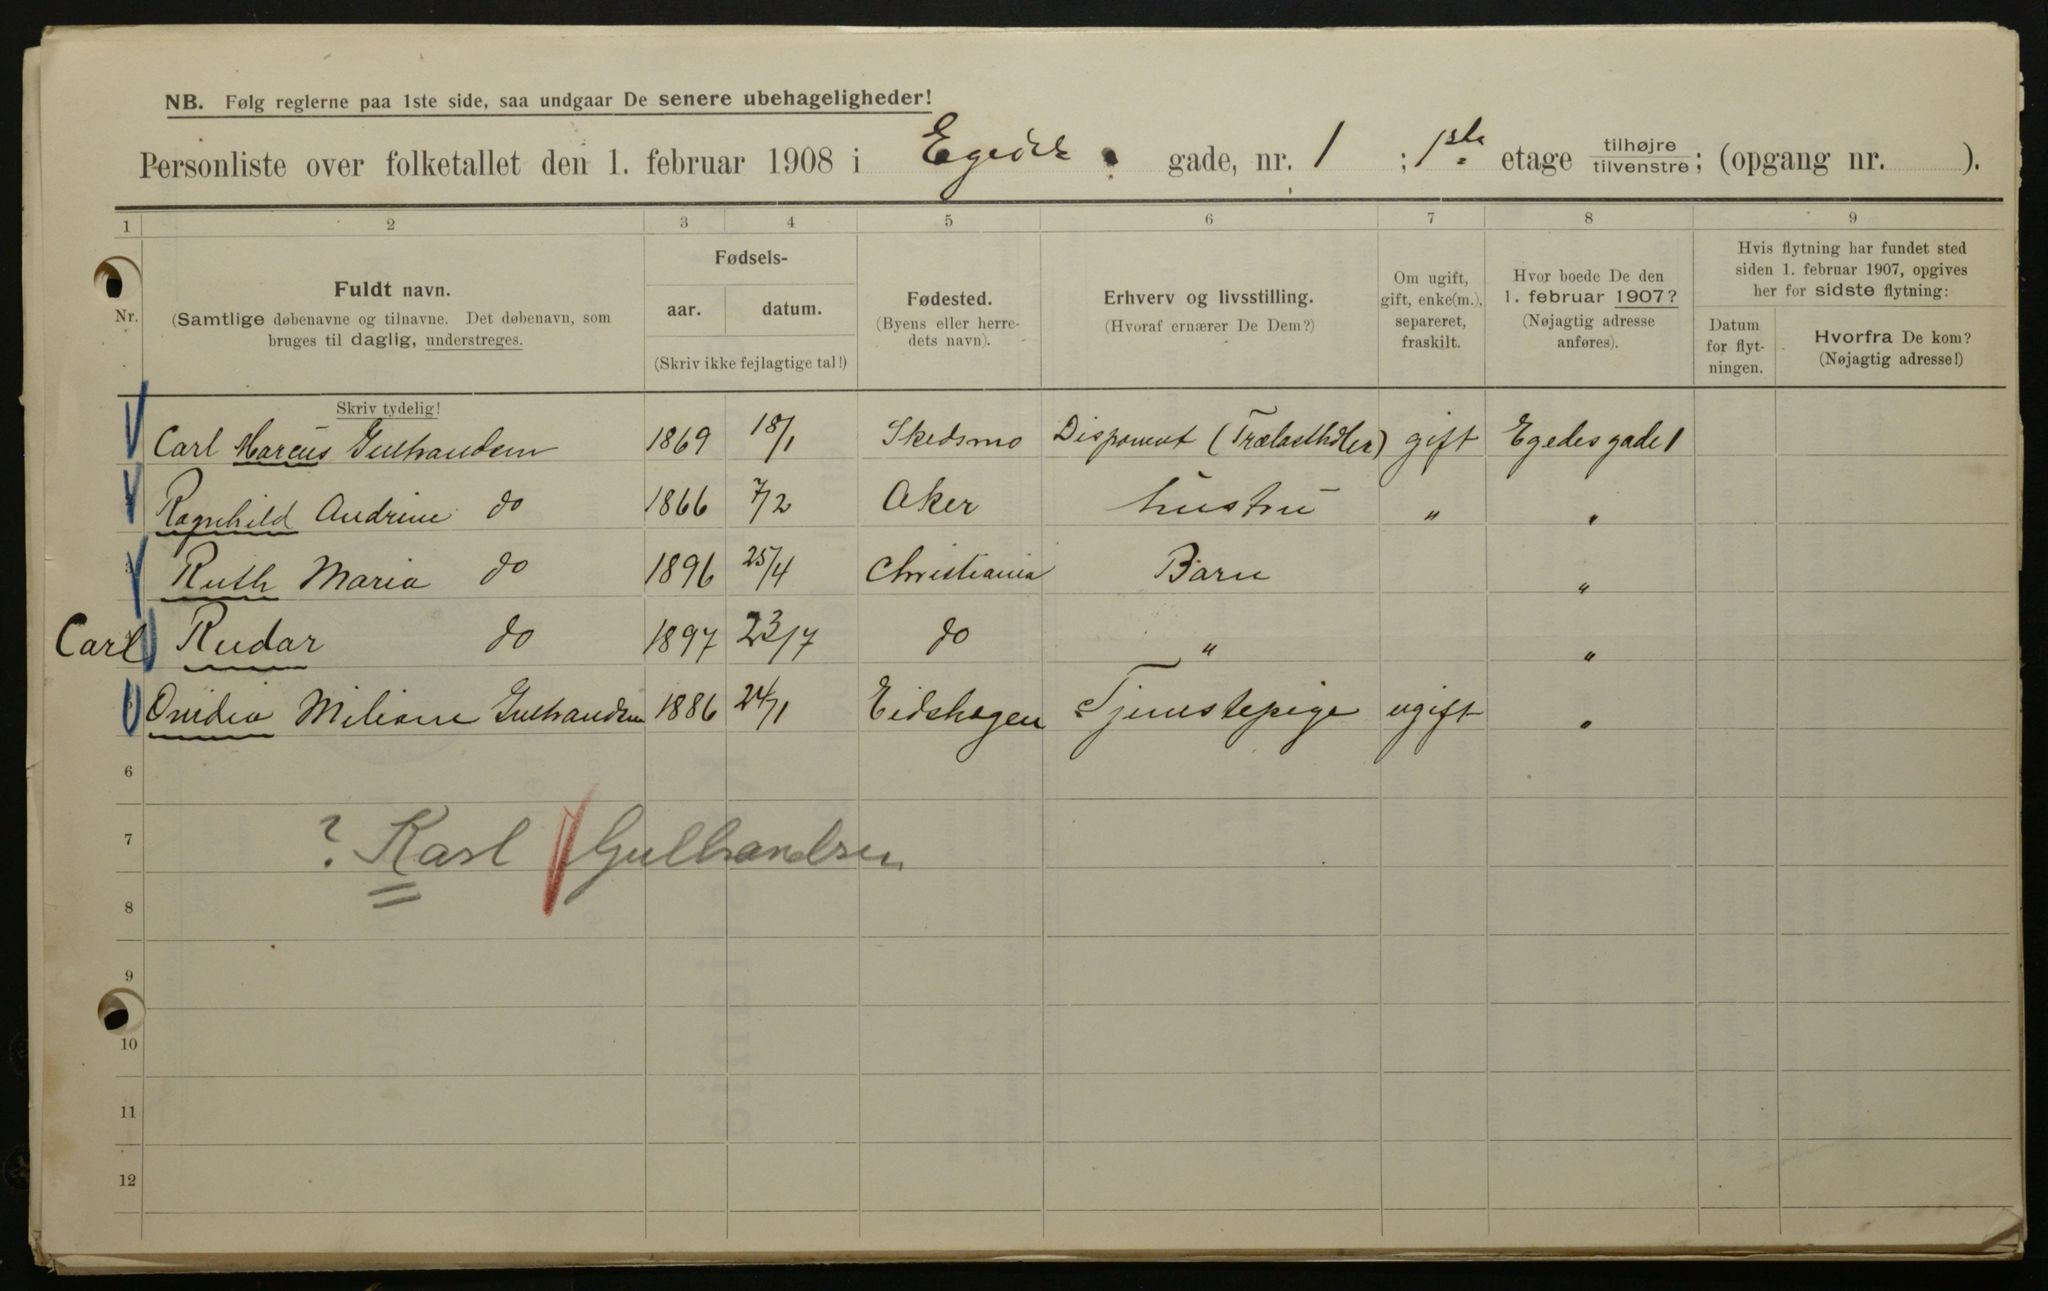 NB. Følg reglerne paa 1ste side, saa undgaar De senere ubehageligheder!
Personliste over folketallet den 1. februar 1908 i Egedes gade, nr. 1 ; 1ste etage tilhøjre / tilvenstre; (opgang nr. ).
1 2 3 4 5 6 7 8 9
Nr.
Fuldt navn.
(Samtlige døbenavne og tilnavne. Det døbenavn, som
bruges til daglig, understreges.
Skriv tydelig!
Fødsels-
aar. datum.
(Skriv ikke fejlagtige tal!)
Fødested.
(Byens eller herre-
dets navn).
Erhverv og livsstilling.
(Hvoraf ernærer De Dem?)
Om ugift,
gift, enke(m.),
separeret,
fraskilt.
Hvor boede De den
1. februar 1907?
(Nøjagtig adresse
anføres).
Hvis flytning har fundet sted
siden 1. februar 1907, opgives
her for sidste flytning:
Datum
for flyt-
ningen.
Hvorfra De kom?
(Nøjagtig adresse!)
Carl Marcus Gulbrandsen 1869 18/1 Skedsmo Disponent (Trælasthdler) gift Egedesgade 1
Ragnhild Andrine do 1866 7/2 Aker hustru " "
Ruth Maria do 1896 25/4 Christiania Barn "
Carl Rudar do 1897 23/7 do " "
Ovidia Miliane Gulbrandsen 1886 24/1 Eidskogen Tjenestepige ugift "
6
7 ? Karl Gulbrandsen
8
9
10
11
12